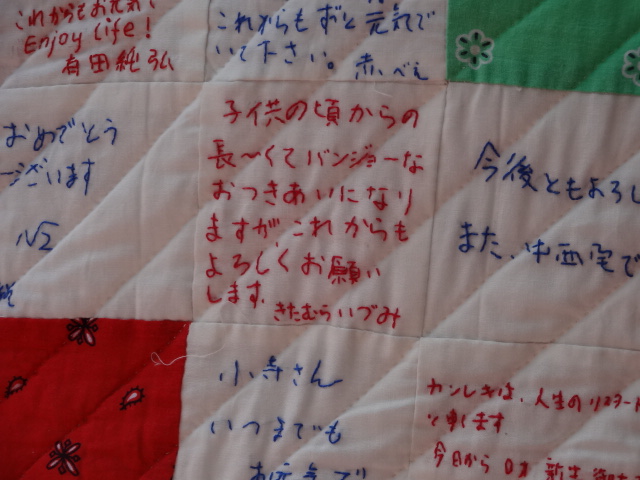 これからもお元気で
Enjoy Life!
有田純弘
これからもずっと元気で
いて下さい。
おめでとう
ございます
子供の頃からの
長〜くてバンジョーな
おつきあいになり
ますが、これからも
よろしくお願い
します。
きたむらいづみ
今後ともよろし
また、中西宅で
小寺さん
いつまでも
お元気で
カンレキは、人生のリスタート
と申します
今日から 0才